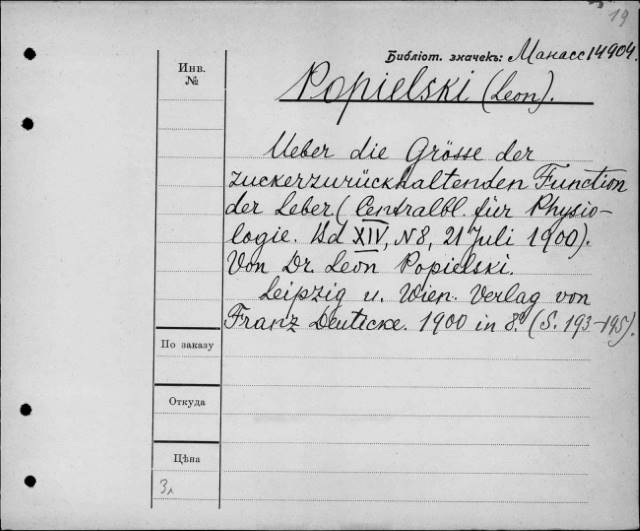 19
Библіот. значекъ: Манасс 14904.
Инв.
№
Popielski (Leon).
Ueber die Grösse der
zuckerzurückhaltenden Function
der Leber. (Centralbl. für Physio-
logie. Bd XIV, N 8, 21 Juli 1900).
Von Dr. Leon Popielski.
Leipzig u. Wien. Verlag von
Franz Deuticke. 1900 in 8º. (S. 193-195).
По заказу
Откуда
Цѣна
3л